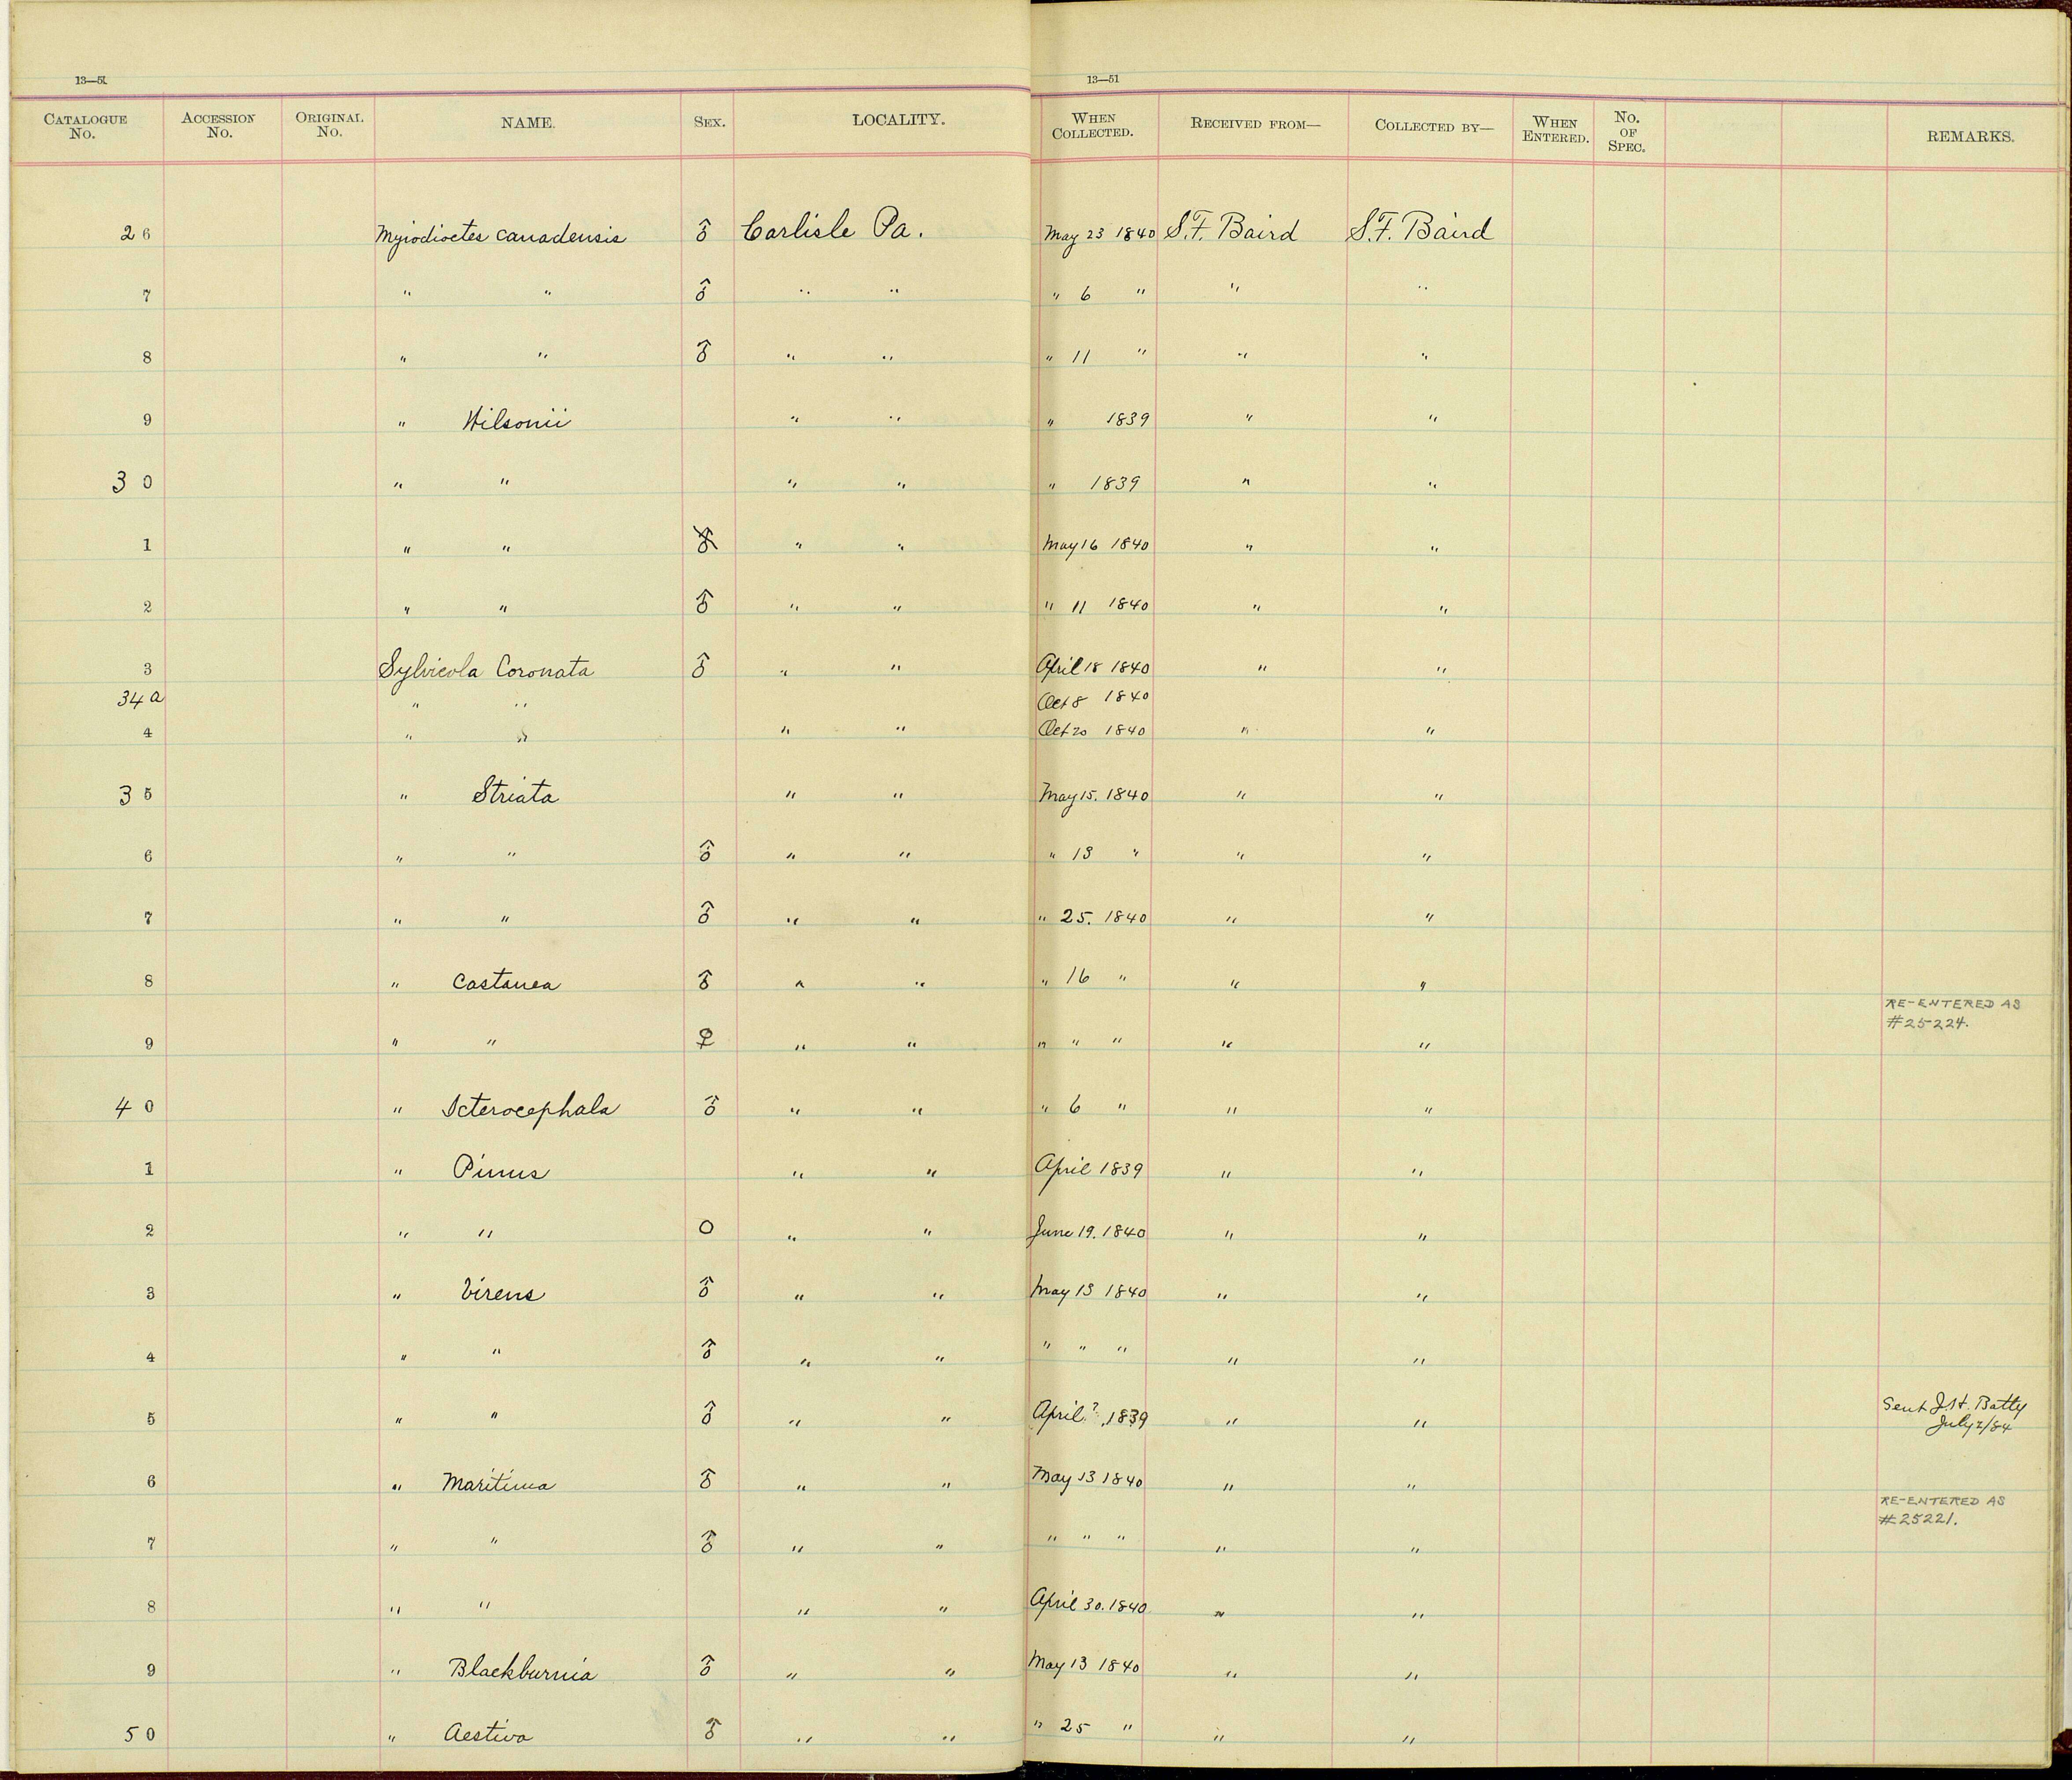 13—51
13—51
CATALOGUE No. ACCESSION No. ORIGINAL No. NAME. SEX. LOCALITY. WHEN COLLECTED. RECEIVED FROM— COLLECTED BY— WHEN ENTERED. No. OF SPEC. REMARKS.
26 Myiodioctes canadensis ♂ Carlisle Pa. May 23 1840 S.F. Baird S.F. Baird
7 " " ♂ " " " 6 " " "
8 " " ♂ " " " 11 " " "
9 " Wilsonii " " " 1839 " "
30 " " " " " 1839 " "
1 " " ♂ " " May 16 1840 " "
2 " " ♂ " " " 11 1840 " "
3 Sylvicola Coronata ♂ " " April 18 1840 " "
34a " " Oct 8 1840
4 " " " " Oct 20 1840 " "
35 " Striata " " May 15. 1840 " "
6 " " ♂ " " " 13 " " "
7 " " ♂ " " " 25. 1840 " "
8 " Castanea ♂ " " " 16 " " "
RE-ENTERED AS
#25224.
9 " " ♀ " " " " " " "
40 " Icterocephala ♂ " " " 6 " " "
1 " Pinus " " April 1839 " "
2 " " O " " June 19. 1840 " "
3 " Virens ♂ " " May 13 1840 " "
4 " " ♂ " " " " " " "
5 " " ♂ " " April ? 1839 " " Sent J.H. Batty
July 2/84
6 " Maritima ♂ " " May 13 1840 " "
RE-ENTERED AS
#25221.
7 " " ♂ " " " " " " "
8 " " " " April 30. 1840 " "
9 " Blackburnia ♂ " " May 13 1840 " "
50 " Aestiva ♂ " " " 25 " " "